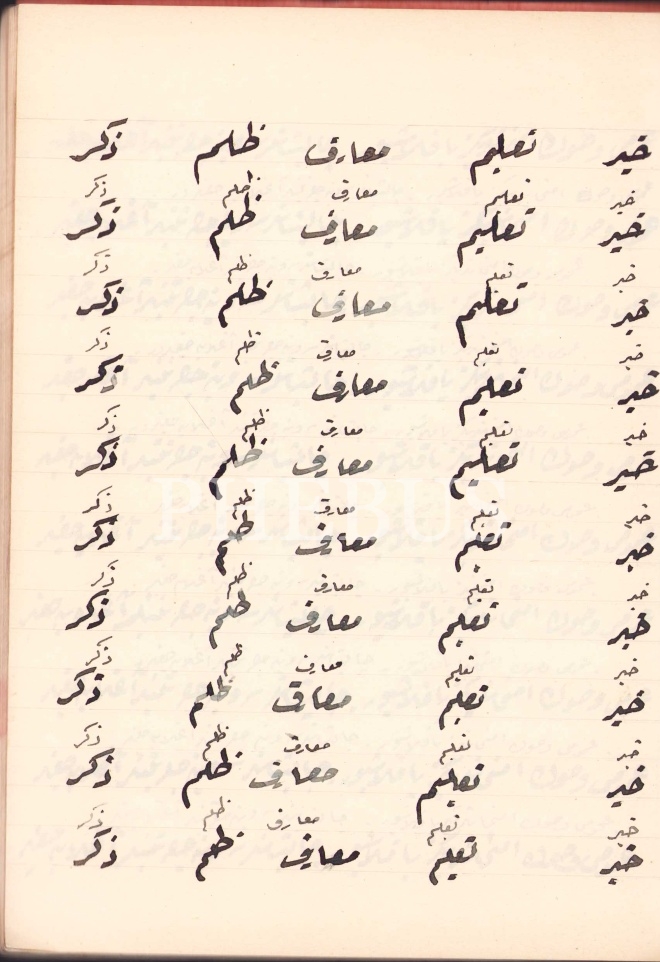 خير تعليم معارف ظلم ذكر
خير تعليم معارف ظلم ذكر
خير تعليم معارف ظلم ذكر
خير تعلم معارف ظلم ذكر
خير تعلم معارف ظلم ذكر
خير تعلم معارف ظلم ذكر
خير تعليم معارف ظلم ذكر
خير تعليم معارف ظلم ذكر
خير تعليم معارف ظلم ذكر
PHEBUS
تعلم معارف ظلم ذكر
خير تعلم معارف ظلم ذكر
خير تعلم معارف ظلم ذكر
خير تعليم معارف ظلم ذكر
خير تعليم معارف ظلم ذكر
خير تعلم معارف ظلم ذكر
خير تعلم معارف ظلم ذكر
خير تعليم معارف ظلم ذكر
خير تعلم معارف ظلم ذكر
خير تعليم معارف ظلم ذكر